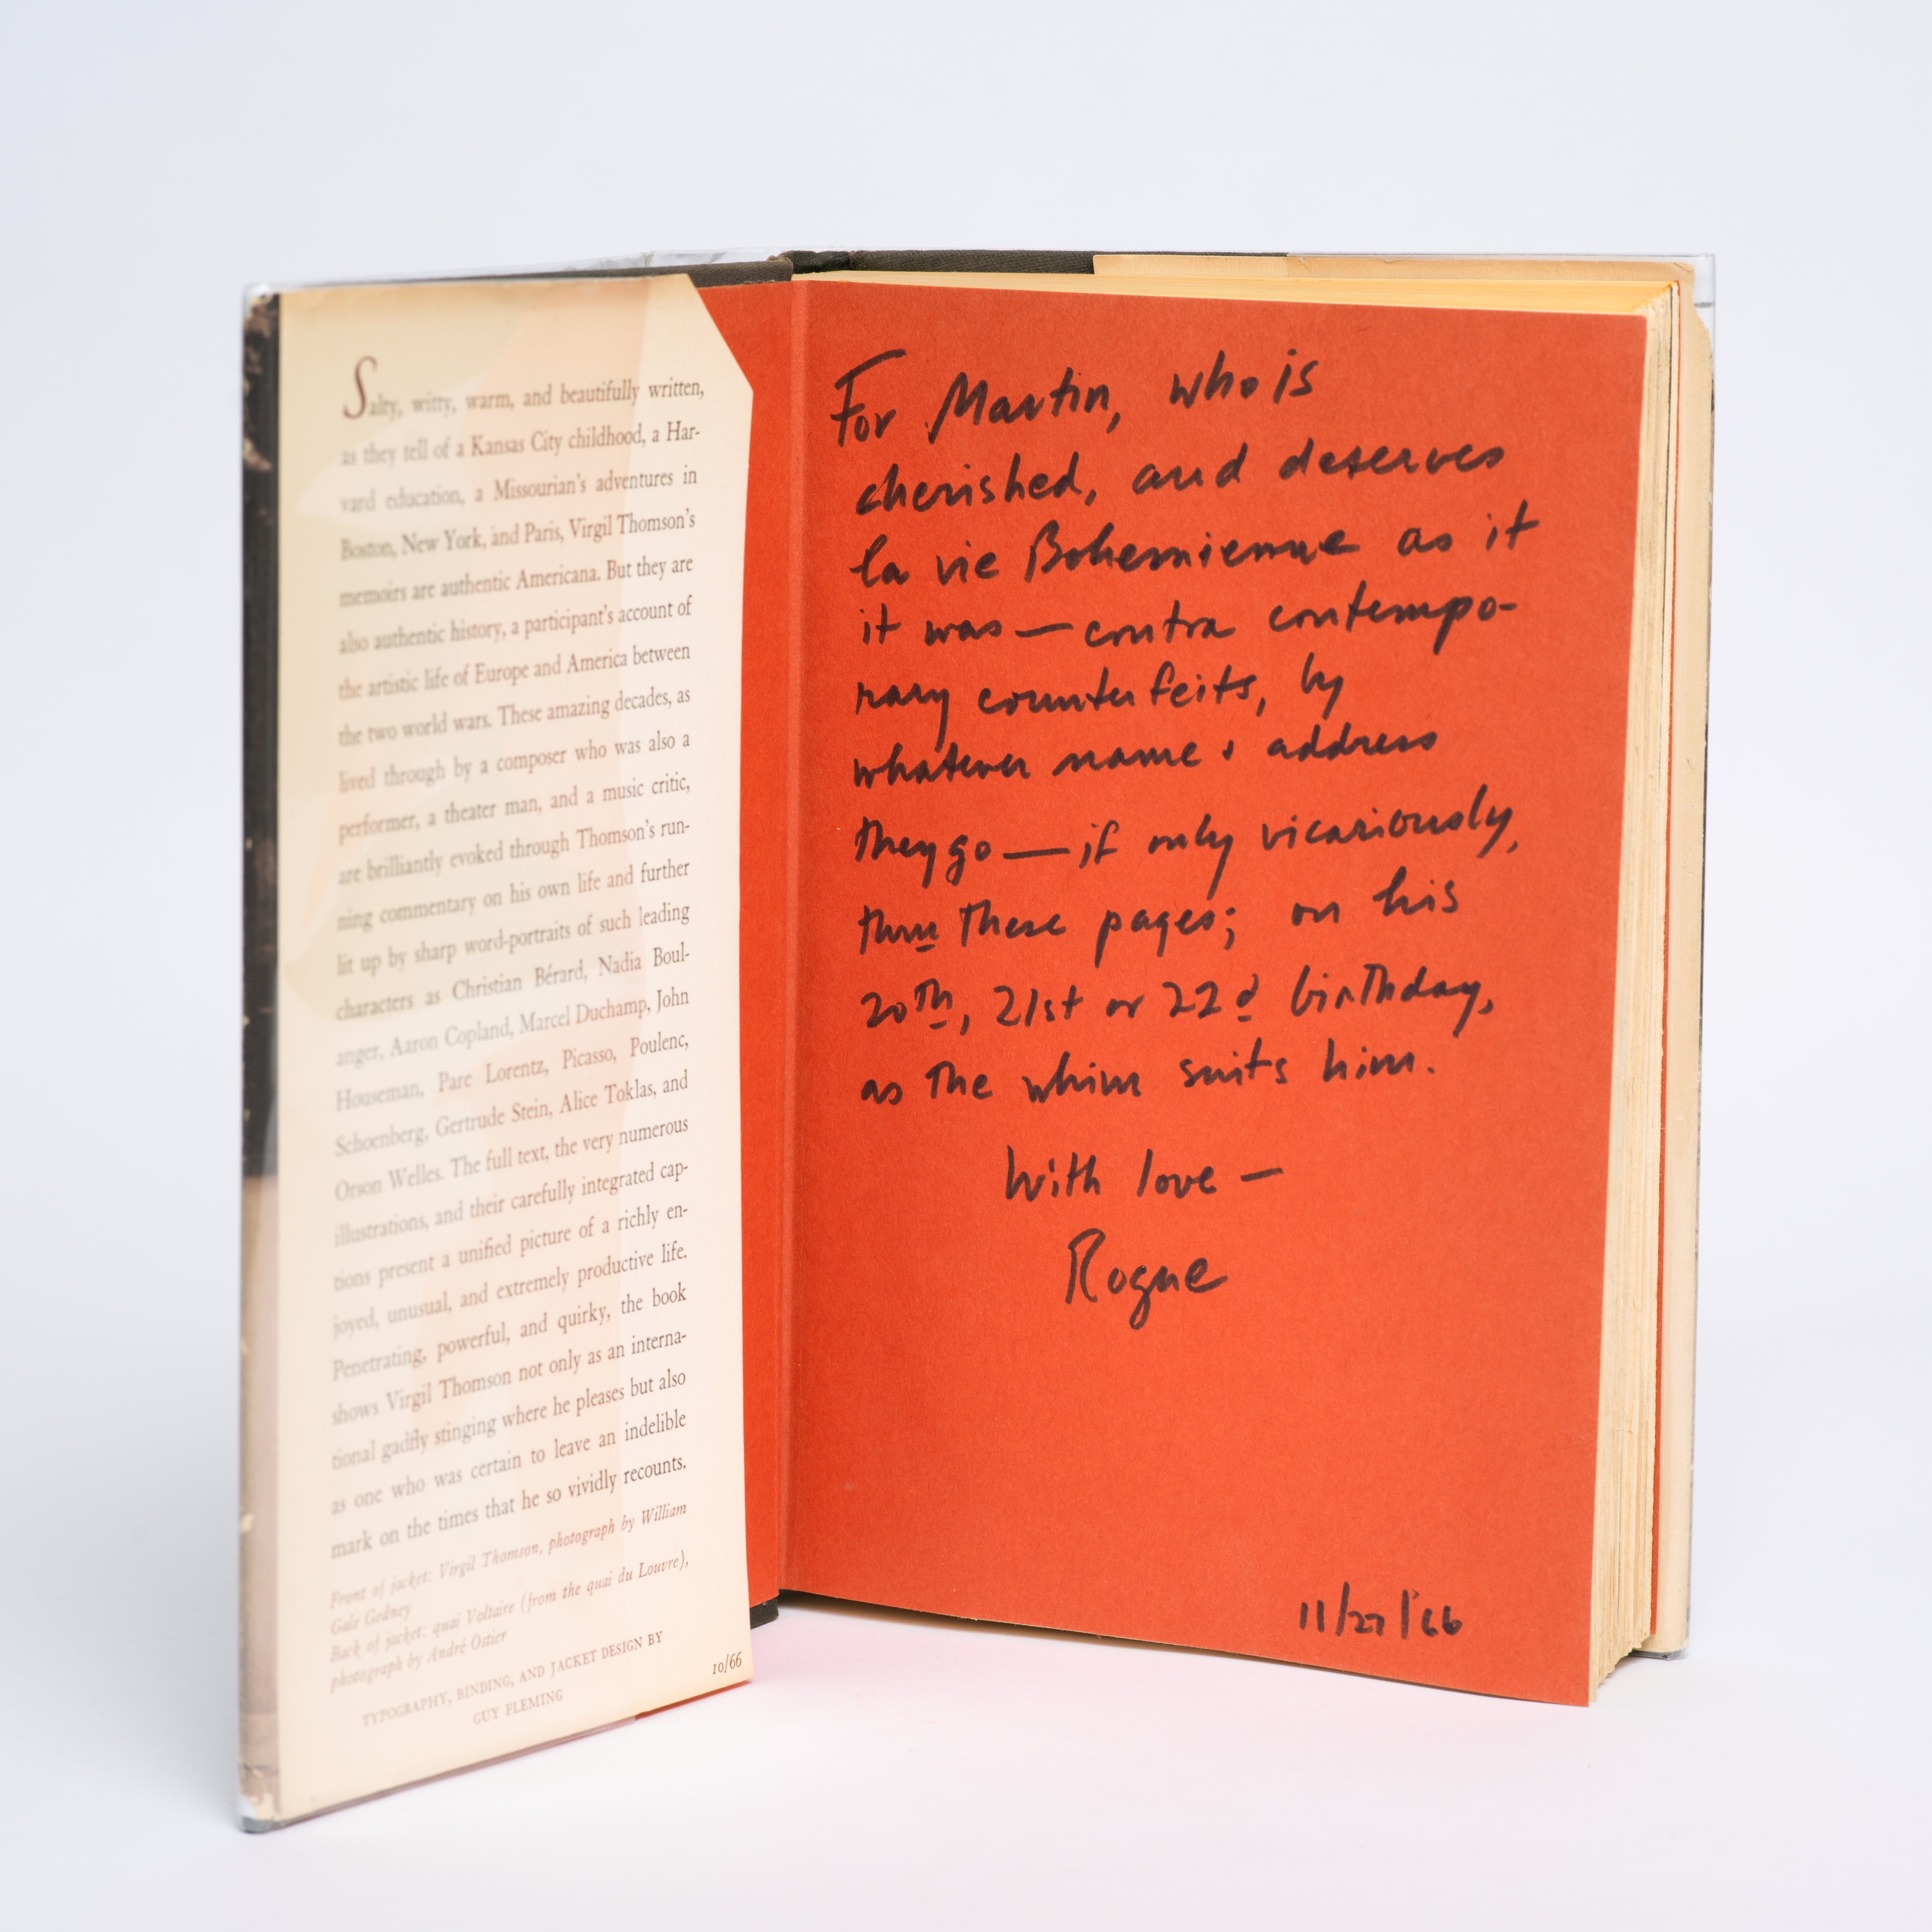 Salty, witty, warm, and beautifully written,
as they tell of a Kansas City childhood, a Har-
vard education, a Missourian's adventures in
Boston, New York, and Paris, Virgil Thomson's
memoirs are authentic Americana. But they are
also authentic history, a participant's account of
the artistic life of Europe and America between
the two world wars. These amazing decades, as
lived through by a composer who was also a
performer, a theater man, and a music critic,
are brilliantly evoked through Thomson's run-
ning commentary on his own life and further
lit up by sharp word-portraits of such leading
characters as Christian Bérard, Nadia Boul-
anger, Aaron Copland, Marcel Duchamp, John
Houseman, Pare Lorentz, Picasso, Poulenc,
Schoenberg, Gertrude Stein, Alice Toklas, and
Orson Welles. The full text, the very numerous
illustrations, and their carefully integrated cap-
tions present a unified picture of a richly en-
joyed, unusual, and extremely productive life.
Penetrating, powerful, and quirky, the book
shows Virgil Thomson not only as an interna-
tional gadfly stinging where he pleases but also
as one who was certain to leave an indelible
mark on the times that he so vividly recounts.
Front of jacket: Virgil Thomson, photograph by William
Gale Gedney
Back of jacket: quai Voltaire (from the quai du Louvre),
photograph by André Ostier
TYPOGRAPHY, BINDING, AND JACKET DESIGN BY
GUY FLEMING
10/66
For Martin, who is
cherished, and deserves
la vie Bohemienne as it
it was — contra contempo-
rary counterfeits, by
whatever name & address
they go — if only vicariously,
thru these pages; on his
20th, 21st or 22d birthday,
as the whim suits him.
With love —
Rogue
11/27/'66